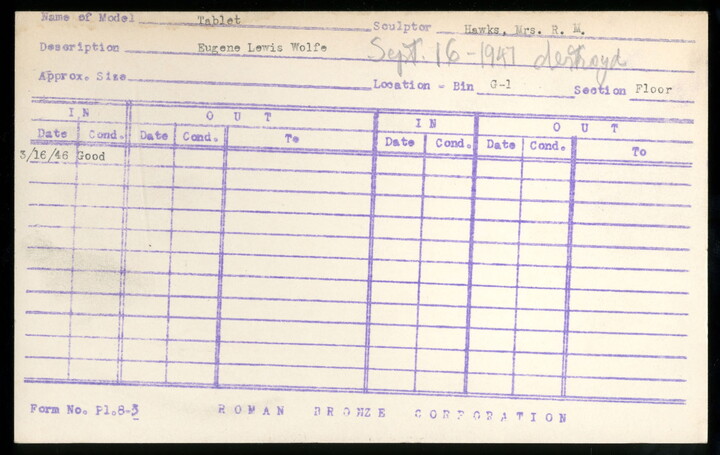 Name of Model Tablet Sculptor Hawks, Mrs. R. M.
Description Eugene Lewis Wolfe Sept. 16-1947 destroyd
Approx. Size Location - Bin G-1 Section Floor
IN OUT IN OUT
Date Cond. Date Cond. To Date Cond. Date Cond. To
3/16/46 Good
Form No. Pl.8-3 ROMAN BRONZE CORPORATION